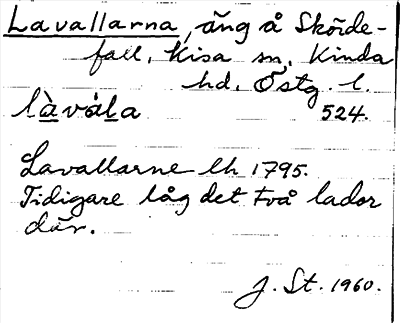 Lavallarna, äng å Skörde-
fall, Kisa sn, Kinda
hd, Östg. l.
làvála 524.
Lavallarne lh 1795.
Tidigare låg det två lador
där.
J. St. 1960.